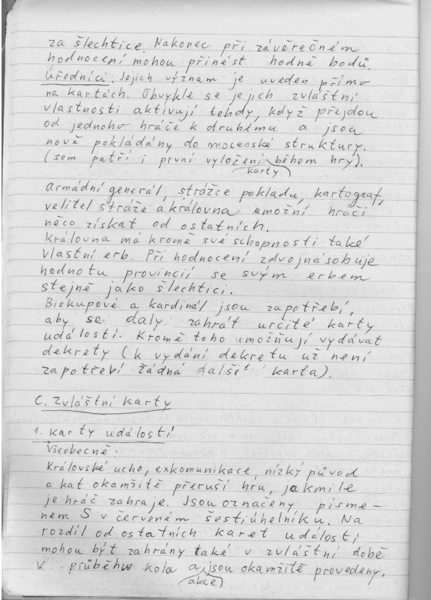 za šlechtice. Nakonec při závěrečném
hodnocení mohou přinést hodně bodů.
Úředníci: Jejich význam je uveden přímo
na kartách. Obvykle se jejich zvláštní
vlastnosti aktivují tehdy, když přejdou
od jednoho hráče k druhému a jsou
nově pokládány do mocenské struktury.
(sem patří i první vyložení karty během hry).
Armádní generál, strážce pokladu, kartograf,
velitel stráže a královna umožní hráči
něco získat od ostatních.
Královna má kromě své schopnosti také
vlastní erb. Při hodnocení zdvojnásobuje
hodnotu provincií se svým erbem
stejně jako šlechtici.
Biskupové a kardinál jsou zapotřebí,
aby se daly zahrát určité karty
událostí. Kromě toho umožňují vydávat
dekrety (k vydání dekretu už není
zapotřebí žádná další karta).
C. Zvláštní karty
1. Karty událostí
Všeobecně:
Královské ucho, exkomunikace, nízký původ
a kat okamžitě přeruší hru, jakmile
je hráč zahraje. Jsou označeny písme-
nem S v červeném šestiúhelníku. Na
rozdíl od ostatních karet událostí
mohou být zahrány také v zvláštní době
v průběhu kola a jsou okamžitě provedeny.
akce